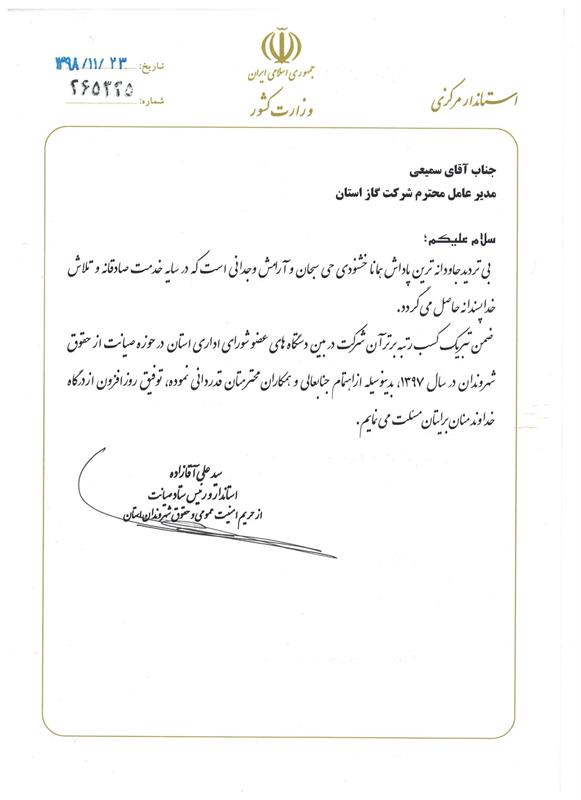 جمهوری اسلامی ایران
وزارت کشور
استاندار مرکزی
تاریخ: ۱۳۹۸/۱۱/۲۳
شماره: ۲۶۵۳۲۵
جناب آقای سمیعی
مدیر عامل محترم شرکت گاز استان
سلام علیکم؛
بی تردید جاودانه ترین پاداش همانا خشنودی حی سبحان و آرامش وجدانی است که در سایه خدمت صادقانه و تلاش
خداپسندانه حاصل می گردد.
ضمن تبریک کسب رتبه برتر آن شرکت در بین دستگاه های عضو شورای اداری استان در حوزه صیانت از حقوق
شهروندان در سال ۱۳۹۷، بدینوسیله از اهتمام جنابعالی و همکاران محترمتان قدردانی نموده، توفیق روزافزون از درگاه
خداوند منان برایتان مسئلت می نمایم.
سید علی آقازاده
استاندار و رییس ستاد صیانت
از حریم امنیت عمومی و حقوق شهروندان استان